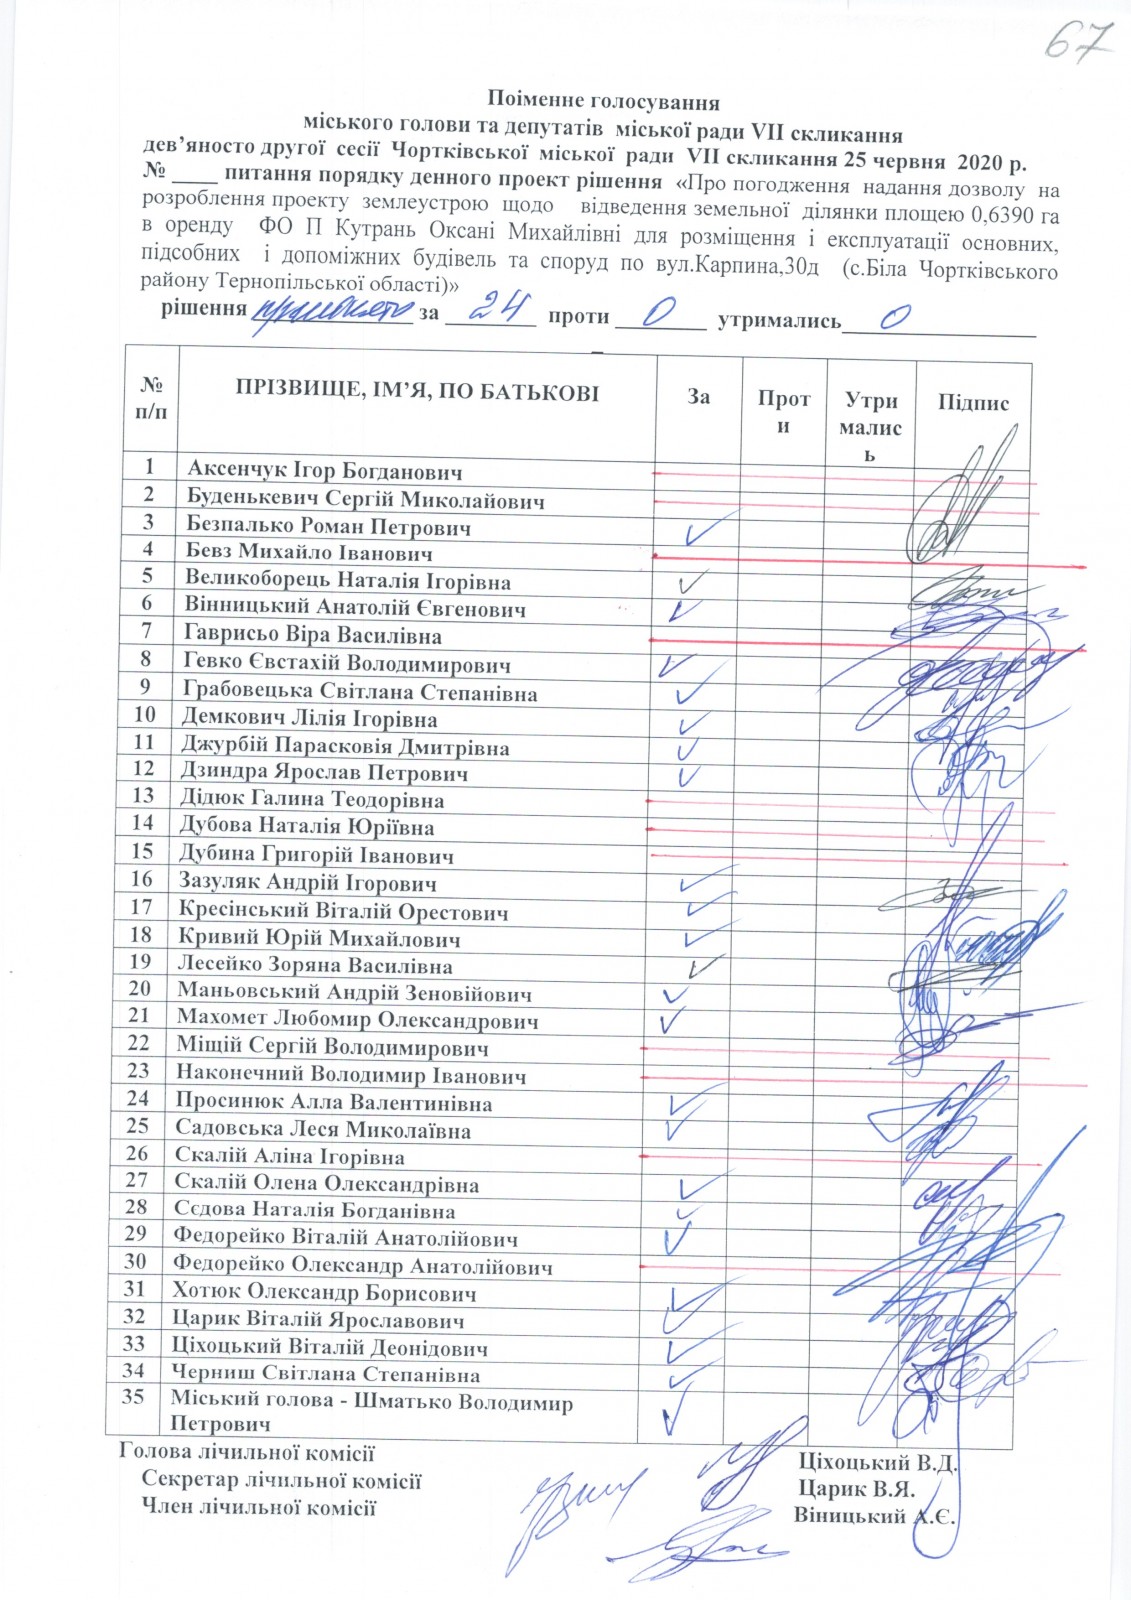 67
Поіменне голосування
міського голови та депутатів міської ради VII скликання
дев’яносто другої сесії Чортківської міської ради VII скликання 25 червня 2020 р.
№ ____ питання порядку денного проект рішення «Про погодження надання дозволу на
розроблення проекту землеустрою щодо відведення земельної ділянки площею 0,6390 га
в оренду ФО П Кутрань Оксані Михайлівні для розміщення і експлуатації основних,
підсобних і допоміжних будівель та споруд по вул.Карпина,30д (с.Біла Чортківського
району Тернопільської області)»
рішення прийнято за 24 проти 0 утримались 0
№ п/п ПРІЗВИЩЕ, ІМ’Я, ПО БАТЬКОВІ За Проти Утримались Підпис
1 Аксенчук Ігор Богданович
2 Буденькевич Сергій Миколайович
3 Безпалько Роман Петрович ✓
4 Бевз Михайло Іванович
5 Великоборець Наталія Ігорівна ✓
6 Вінницький Анатолій Євгенович ✓
7 Гаврисьо Віра Василівна
8 Гевко Євстахій Володимирович ✓
9 Грабовецька Світлана Степанівна ✓
10 Демкович Лілія Ігорівна ✓
11 Джурбій Парасковія Дмитрівна ✓
12 Дзиндра Ярослав Петрович ✓
13 Дідюк Галина Теодорівна
14 Дубова Наталія Юріївна
15 Дубина Григорій Іванович
16 Зазуляк Андрій Ігорович ✓
17 Кресінський Віталій Орестович ✓
18 Кривий Юрій Михайлович ✓
19 Лесейко Зоряна Василівна ✓
20 Маньовський Андрій Зеновійович ✓
21 Махомет Любомир Олександрович ✓
22 Міщій Сергій Володимирович
23 Наконечний Володимир Іванович
24 Просинюк Алла Валентинівна ✓
25 Садовська Леся Миколаївна ✓
26 Скалій Аліна Ігорівна
27 Скалій Олена Олександрівна ✓
28 Сєдова Наталія Богданівна ✓
29 Федорейко Віталій Анатолійович ✓
30 Федорейко Олександр Анатолійович
31 Хотюк Олександр Борисович ✓
32 Царик Віталій Ярославович ✓
33 Ціхоцький Віталій Деонідович ✓
34 Черниш Світлана Степанівна ✓
35 Міський голова - Шматько Володимир ✓
Петрович
Голова лічильної комісії Ціхоцький В.Д.
Секретар лічильної комісії Царик В.Я.
Член лічильної комісії Віницький А.Є.